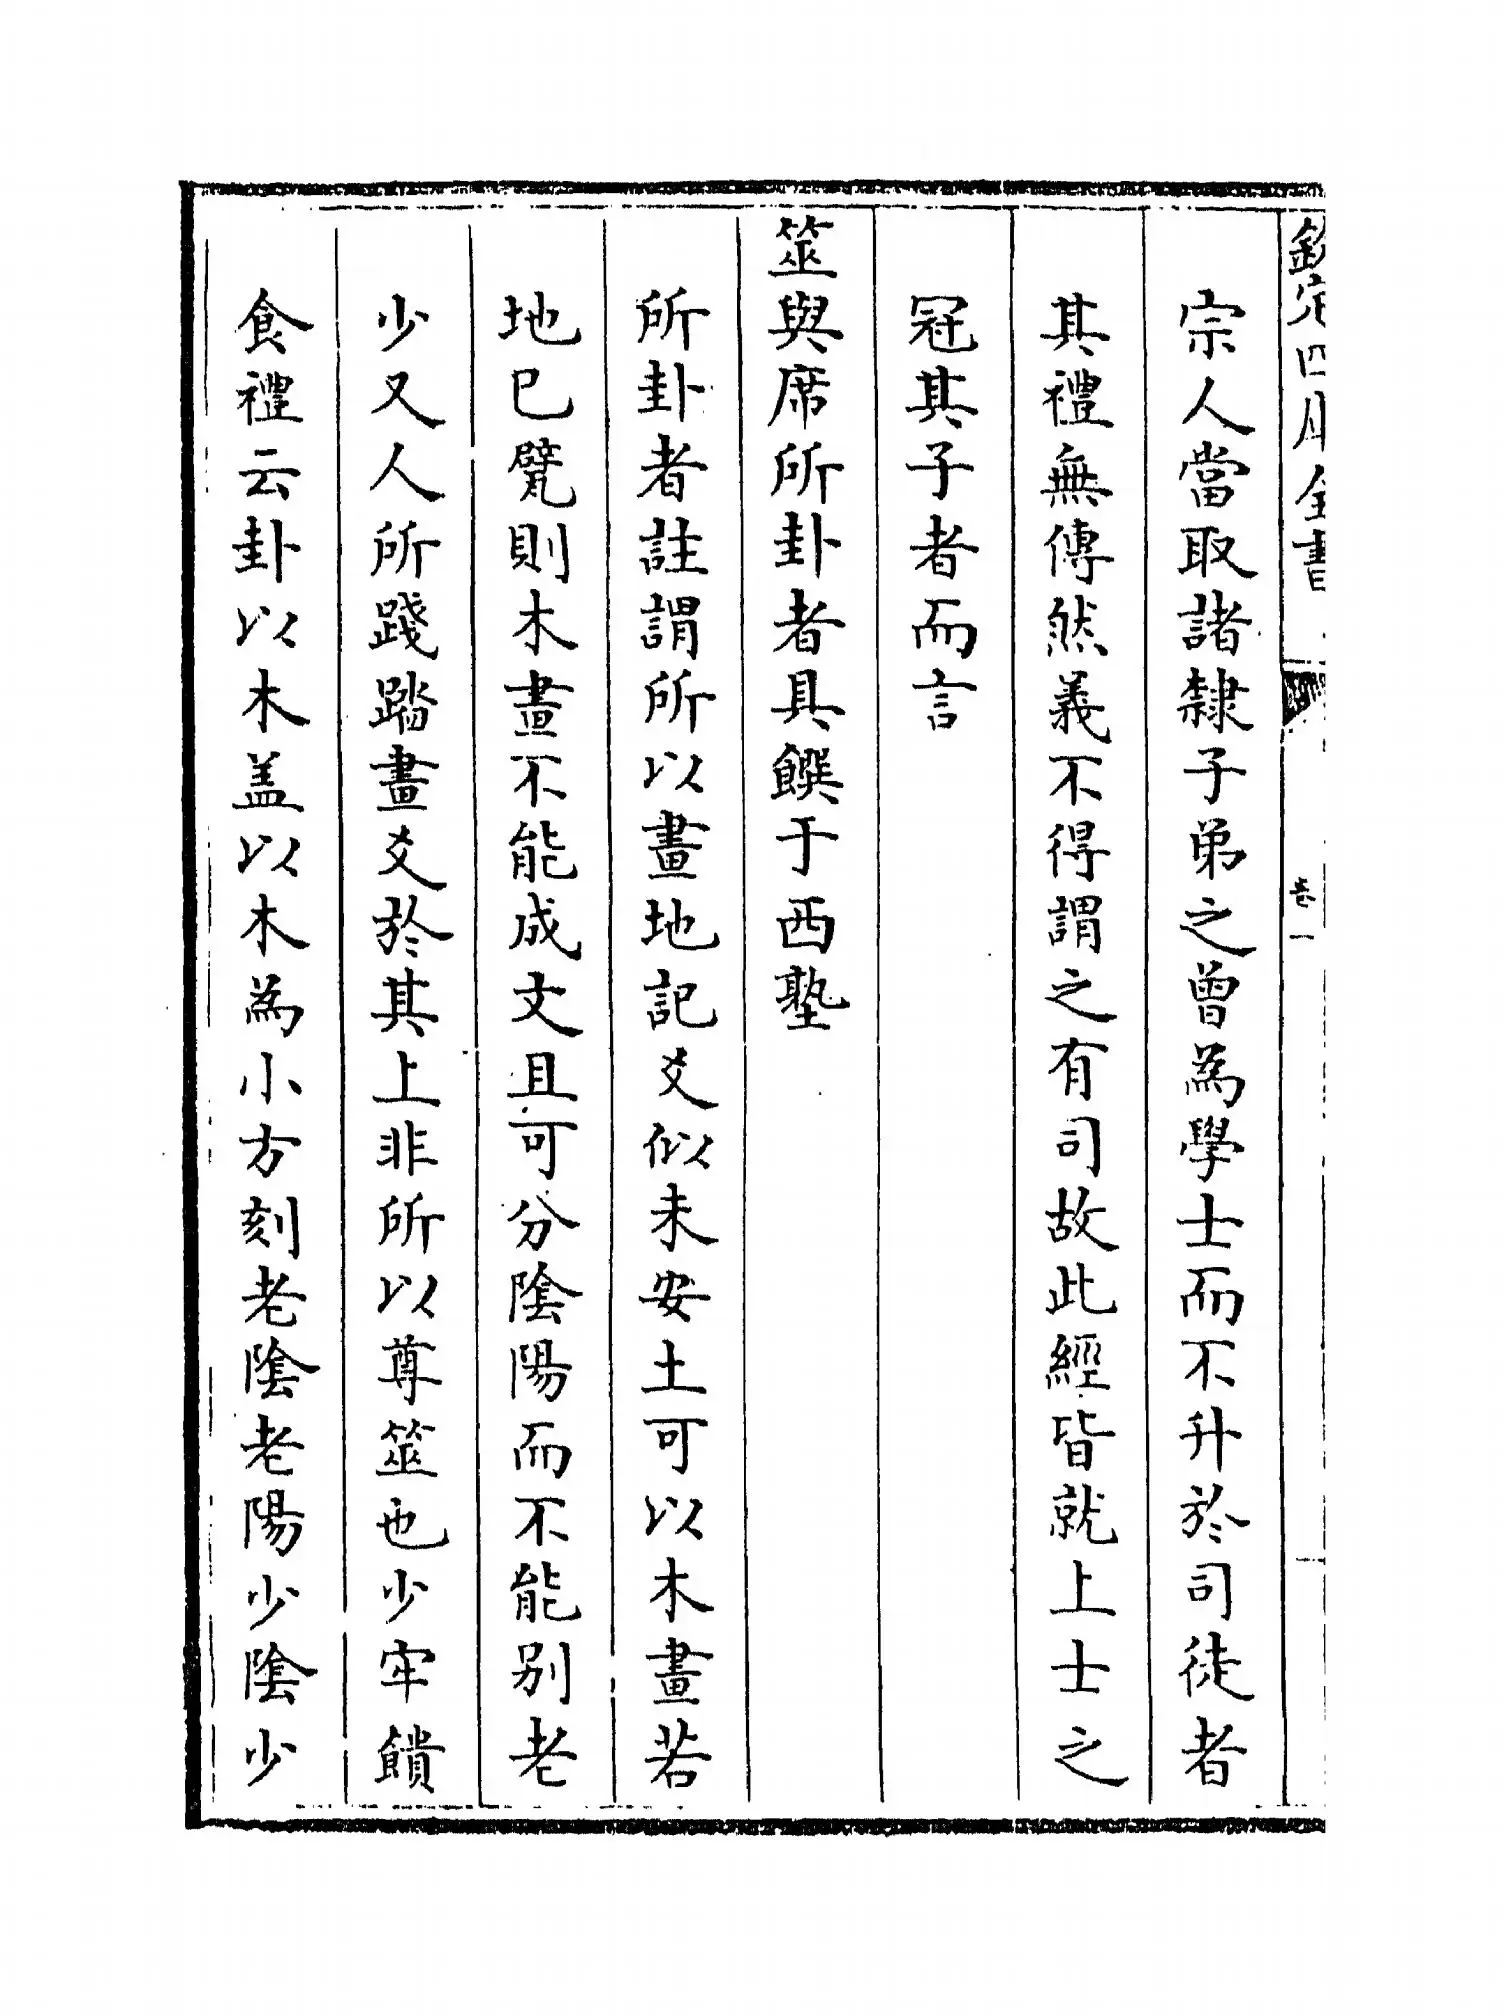 欽定四庫全書
卷一
宗人當取諸隸子弟之曾為學士而不升於司徒者
其禮無傳然義不得謂之有司故此經皆就上士之
冠其子者而言
筮與席所卦者具饌于西塾
所卦者註謂所以畫地記爻似未安土可以木畫若
地已甓則木畫不能成文且可分陰陽而不能別老
少又人所踐踏畫爻於其上非所以尊筮也少牢饋
食禮云卦以木盖以木為小方刻老陰老陽少陰少